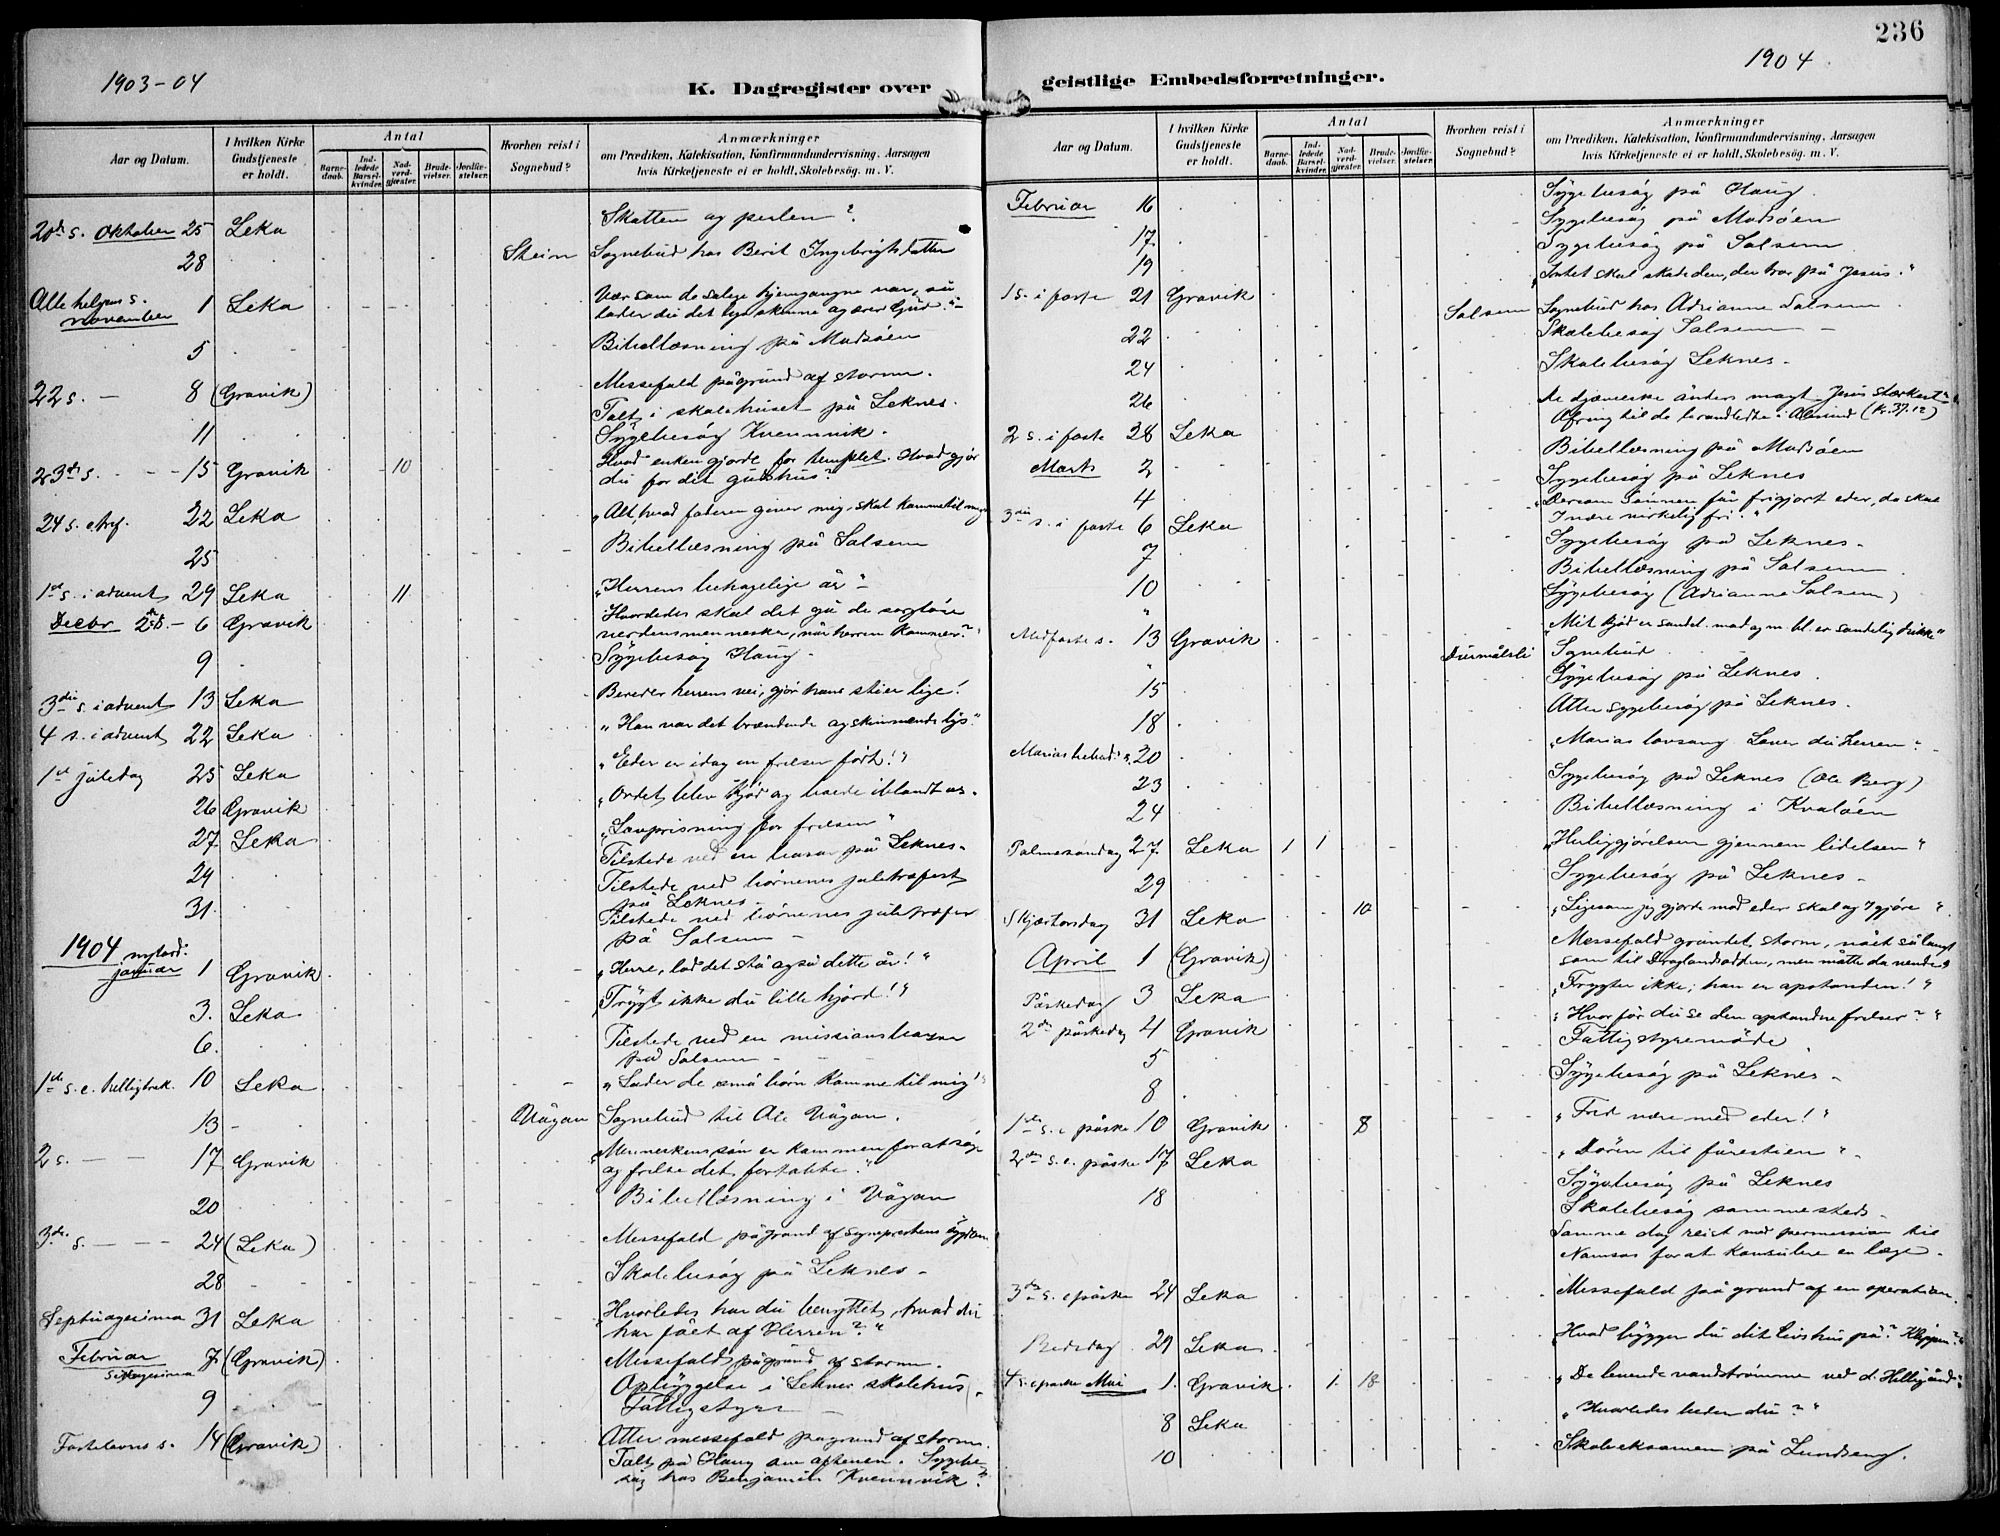 236
1903-04
1904
K. Dagregister over geistlige Embedsforretninger.
Aar og Datum. I hvilken Kirke Gudstjeneste er holdt. Antal Barnedaab. Indledede Barselkvinder. Nadverdgjæster. Brudevielser. Jordfæstelser. Hvorhen reist i Sognebud? Anmærkninger om Prædiken, Katekisation, Konfirmandundervisning, Aarsagen hvis Kirketjeneste ei er holdt, Skolebesøg m. V.
20de s. Oktober 25 Leka Skatten og perlen?
28 Stein Sognebud hos Berit Ingebrigtsdatter
Alle helgens s. november 1 Leka Vær som de salige hjemgangne var, så
lader du det lys skinne og ærer Gud."
5 Bibellæsning på Madsøen
22 s. — 8 (Gravik) Messefald på grund af storm.
Talt i skolehuset på Leknes.
11 Sygebesøg Kvennvik.
23de s. - - 15 Gravik 10 Hvad enken gjorde for templet. Hvad gjør
du for dit gudshus?
24 s. e tref. 22 Leka "Alt, hvad faderen giver mig, skal komme til mig
25 Bibellæsning på Salsem
1ste s. i advent 29 Leka 11 "Herrens behagelige år"
Decbr 2den s. - 6 Gravik Hvorledes skal det gå de sorgløse
verdensmennesker, når herren kommer?
9 Sygebesøg Haug
3die s. i advent 13 Leka Bereder herrens vei, gjør hans stier lige!
4 s. i advent 22 Leka "Han var det brændende og skinnende lys."
1ste juledag 25 Leka "Eder er idag en frelser født!"
26 Gravik "Ordet blev kjød og boede iblandt os.
27 Leka "Lovprisning for frelsen"
29 Tilstede ved en basar på Leknes.
31 Tilstede ved børnenes juletræfest
på Leknes
Tilstede ved børnenes juletræfest
på Salsem
1904 nytårsd. januar 1 Gravik "Herre, lad det stå også dette år!"
3. Leka "Frygt ikke du lille hjord!"
6. Tilstede ved en missionsbasar
på Salsem
1ste s. e. helligtrek. 10 Leka "Lader de små børn komme til mig!"
13 Vågan Sognebud til Ole Vågan.
2 s. — — 17 Gravik "Menneskens søn er kommen for at søge
og frelse det fortabte."
20 Bibellæsning i Vågan
3de s. — — 24 (Leka) Messefald på grund af sognepræstens sygdom.
28 Skolebesøg på Leknes
Septuagesima 31 Leka "Hvorledes har du benyttet, hvad du
har fået af Herren?"
Februar Sexagesima 7 (Gravik) Messefald på grund af storm.
Opbyggelse i Leknes skolehus.
9 Fattigstyre
Fastelavns s. 14 (Gravik) Atter messefald på grund af storm.
Talt på Haug om aftenen. Sygebe-
søg hos Benjamin Kvennvik.
Aar og Datum. I hvilken Kirke Gudstjeneste er holdt. Antal Barnedaab. Indledede Barselkvinder. Nadverdgjæster. Brudevielser. Jordfæstelser. Hvorhen reist i Sognebud? Anmærkninger om Prædiken, Katekisation, Konfirmandundervisning, Aarsagen hvis Kirketjeneste ei er holdt, Skolebesøg m. V.
Februar 16 Sygebesøg på Haug.
17 Sygebesøg på Madsøen
19 Sygebesøg på Salsem
1 s. i faste 21 Gravik "Intet skal skade den, der tror på Jesus."
22 Salsem Sognebud hos Adrianne Salsem
Skolebesøg Salsem
24 Skolebesøg Leknes.
26
2 s. i faste 28 Leka De djævelske ånders magt. Jesus stærkest.
Ofring til de brandlidte i Ålesund (Kr. 37.12)
Marts 2 Bibellæsning på Madsøen
4 Sygebesøg på Leknes
3die s. i faste 6 Leka "Dersom Sønnen får frigjort eder, da skal
I være virkelig fri."
7 Sygebesøg på Leknes.
10 Bibellæsning på Salsem
" Sygebesøg (Adrianne Salsem)
Midfaste s. 13 Gravik "Mit kjød er sandel. mad og m. bl. er sandelig drikke"
" Durmålsli Sognebud
15 Sygebesøg på Leknes.
18 Atter sygebesøg på Leknes.
Marias bebud. s. 20 "Marias lovsang. Lover du Herren?
23 Sygebesøg på Leknes (Ole Berg)
24 Bibellæsning i Kvaløen
Palmesøndag 27 Leka 1 1 "Helliggjørelsen gjennem lidelsen"
29 Sygebesøg på Leknes.
Skjærtorsdag 31 Leka 10 "Ligesom jeg gjorde mod eder skal og I gjøre".
April 1 (Gravik) Messefald grundet storm, nået så langt
som til Draglandsodden, men måtte da vende.
Påskedag 3 Leka "Frygter ikke; han er opstanden!"
2den påskedag 4 Gravik "Hvor får du se den opstandne frelser?"
5 Fattigstyremøde
8 Sygebesøg på Leknes.
1ste s. e. påske 10 Gravik 8 "Fred være med eder!"
2den s. e. påske 17 Leka "Døren til fårestien".
18 Sygebesøg på Leknes
Skolebesøg sammesteds.
Samme dag reist med permission til
Namsos for at konsulere en læge.
3de s. e påske 24 Leka Messefald på grund af en operation.
Bededag 29 Leka "Hvad bygger du dit livshus på? Klippen?"
4 s. e påske Mai 1. Gravik 1 18 "De levende vandstrømme ved d. Helligånd"
8 Leka "Hvorledes beder du?"
10 Skoleeksamen på Lundseng.